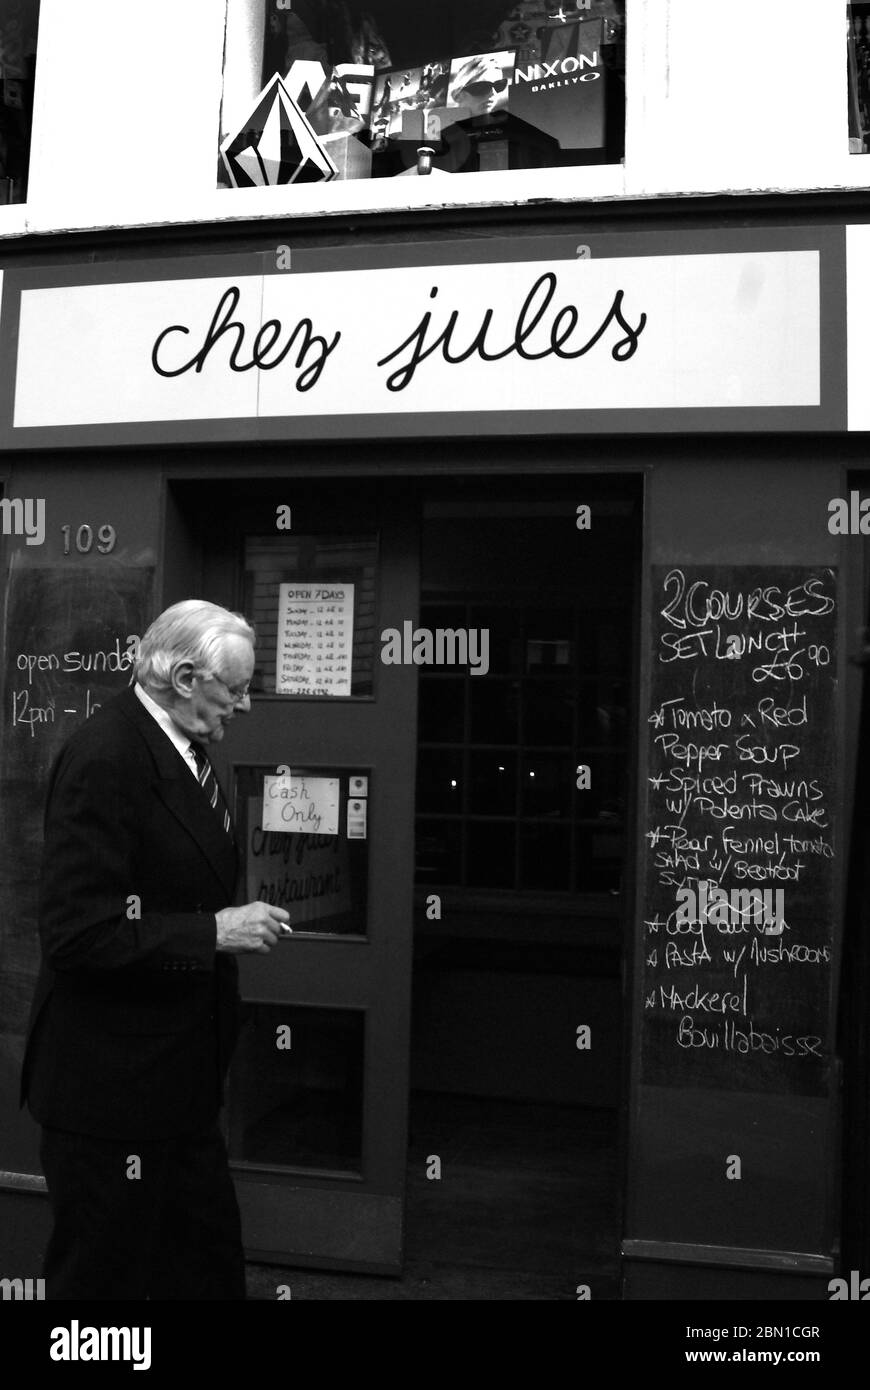 NIXON
OAKLEY
chez jules
109
OPEN 7 DAYS
SUNDAY
MONDAY
TUESDAY
WEDNESDAY
THURSDAY
FRIDAY
SATURDAY
open sunday
12pm -
Cash
Only
chez jules
restaurant
2 COURSES
SET LUNCH
£6.90
* Tomato & Red
Pepper Soup
* Spiced Prawns
w/ Polenta Cake
* Pear, Fennel, tomato
Salad w/ Beetroot
syrup
* Coq au vin
* PASTA w/ MUSHROOMS
* MACKEREL
Bouillabaisse
alamy
Image ID: 2BN1CGR
www.alamy.com